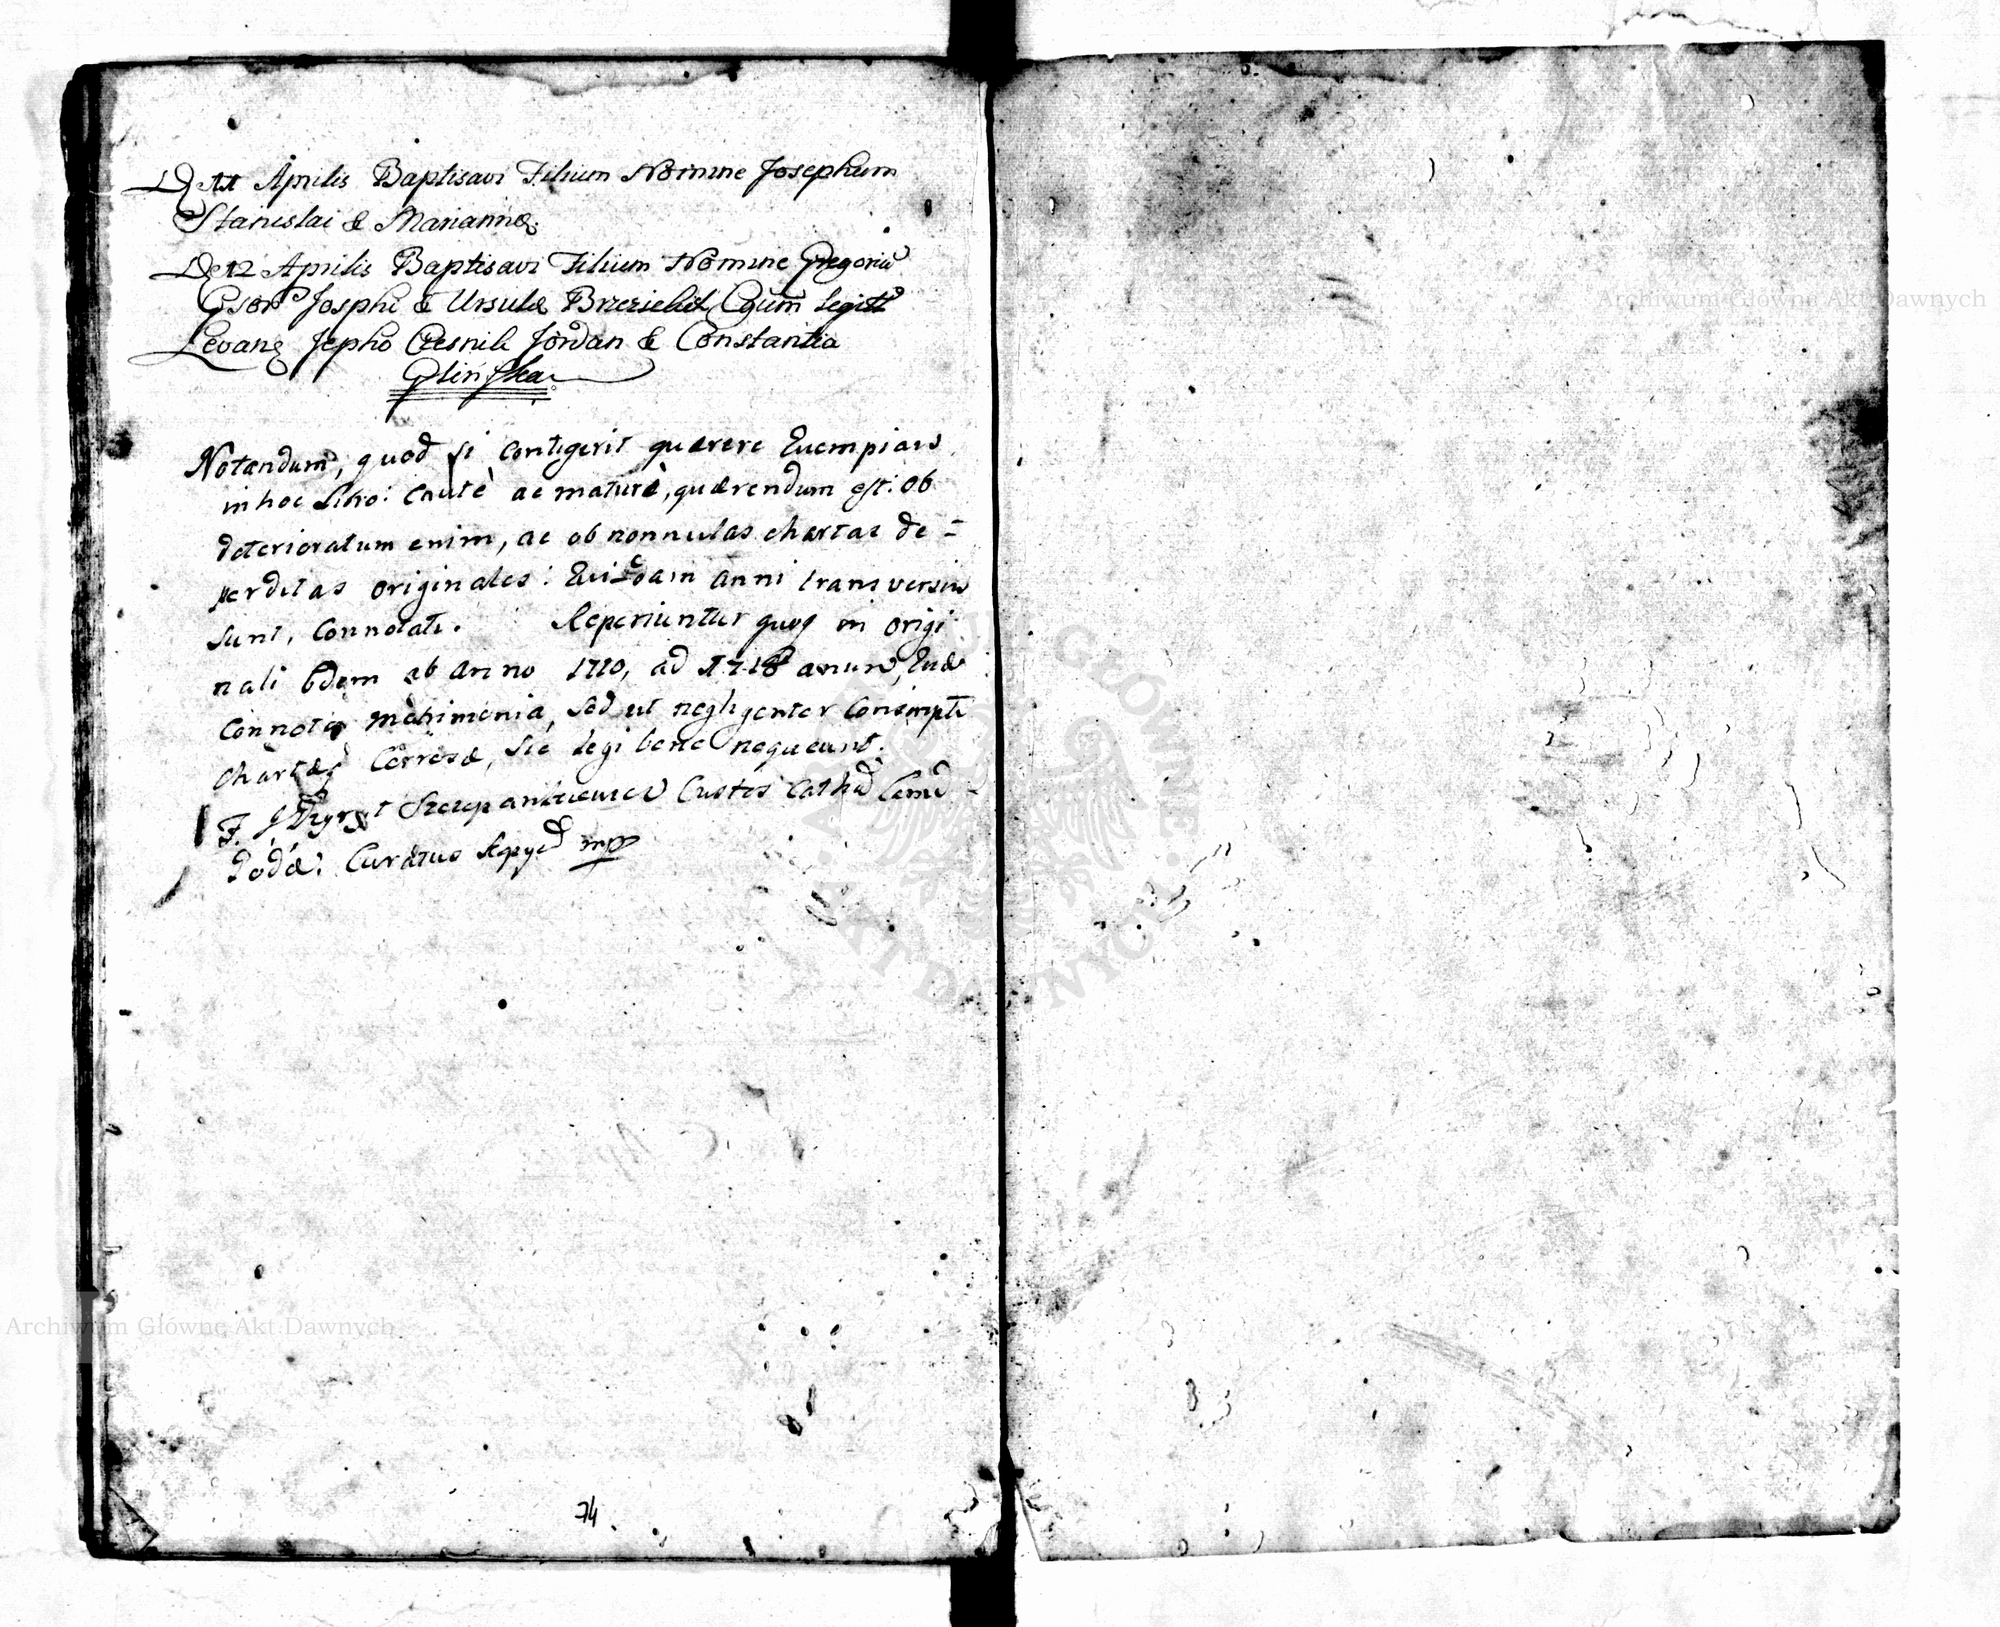 De 11 Aprilis Baptisavi Filium Nomine Josephum
Stanislai & Mariannæ
De 12 Aprilis Baptisavi Filium Nomine Gregoriũ
Josphi & Ursulæ Cõjum Legitt
Levang Jepho Jordan & Constantia
Glinska
Notandum, quod si Contigerit quærere Exempiars
in hoc Libro: Cautè ac maturè, quærendum est: Ob
deterioratum enim, ac ob nonnullas chartas de=
perditas originales: Quidam anni transversim
sunt, Connotati. Reperiuntur quoq in origi
nali ab Anno 1710, ad 1718 annum, Quæ
Connota Matrimonia, Sed ut negligenter Conscripte
Chartæ Corrosæ, sic legi bene nequeunt.
F. Custos Cathed
Curatus mp
74
Archiwum Główne Akt Dawnych
Archiwum Główne Akt Dawnych
ARCHIWUM GŁÓWNE · AKT DAWNYCH ·